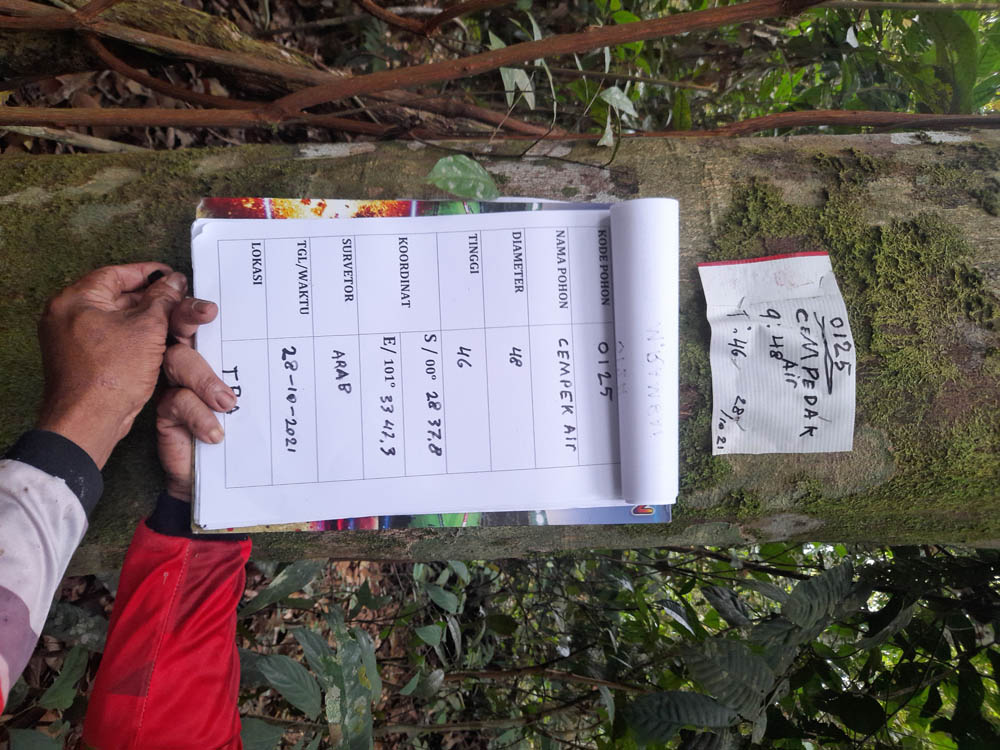 0125
CEMPEDAK
Air
9: 48
T: 46
28/10 21
KODE POHON 0125
NAMA POHON CEMPEK Air
DIAMETER 48
TINGGI 46
KOORDINAT
S / 00° 28 37,8
E/ 101° 33 47,3
SURVETOR ARAB
TGL/WAKTU 28-10-2021
LOKASI